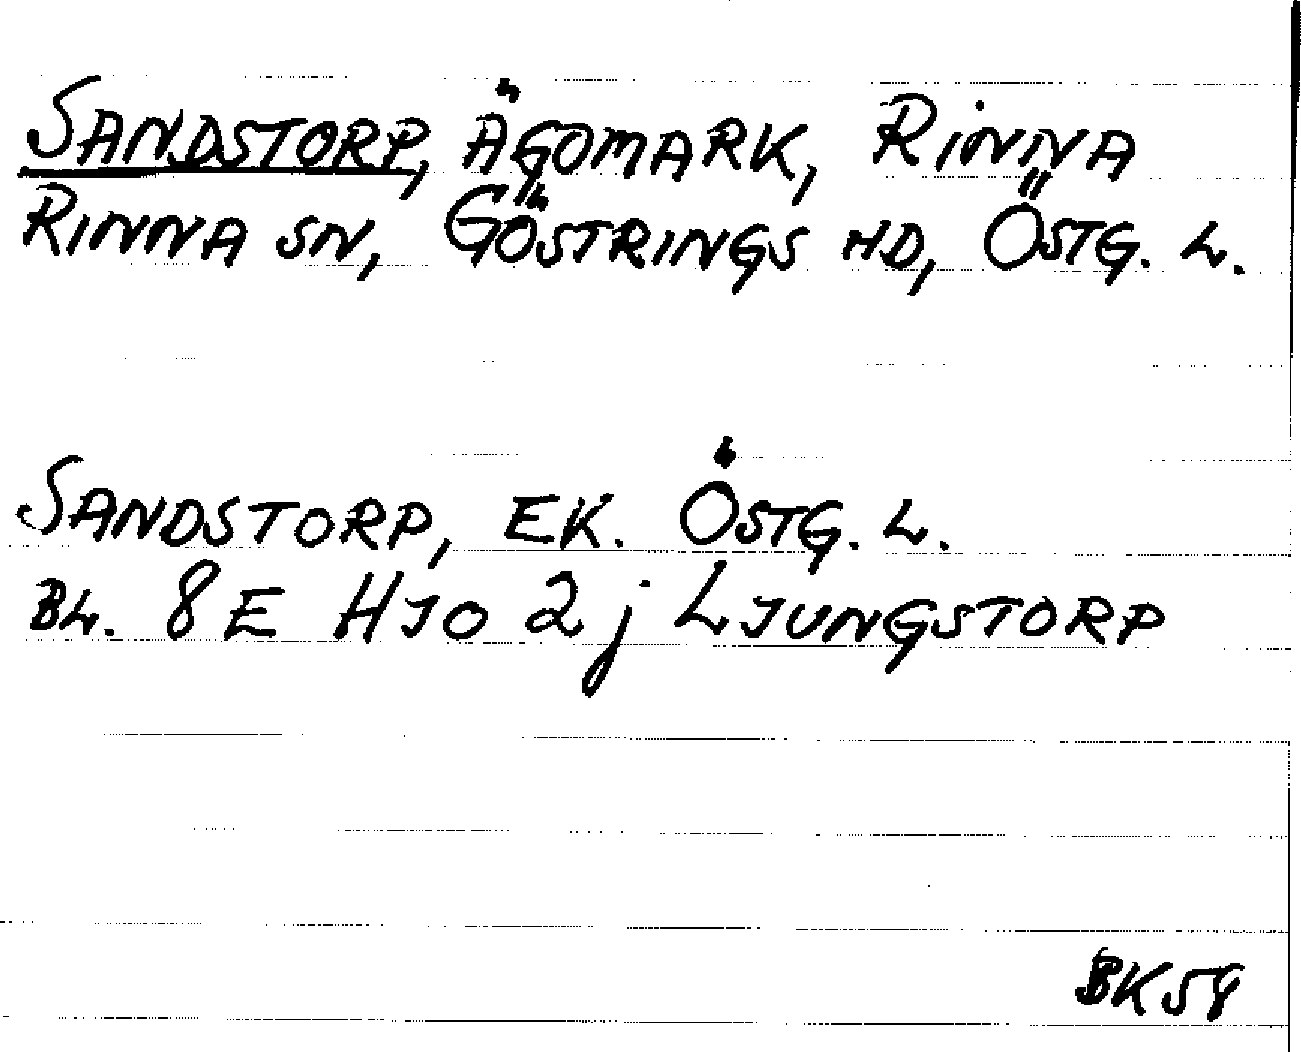 SANDSTORP, ÄGOMARK, RINNA
RINNA SN, GÖSTRINGS HD, ÖSTG. L.
SANDSTORP, EK. ÖSTG. L.
BL. 8E HJO 2j LJUNGSTORP
BK58